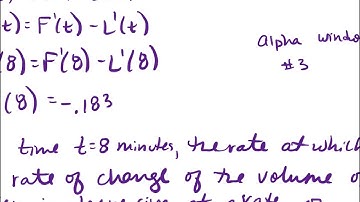 t) = F'(t) - L'(t)
alpha window
(8) = F'(8) - L'(8)
#3
(8) = -.183
time t=8 minutes, the rate at which
rate of change of the volume